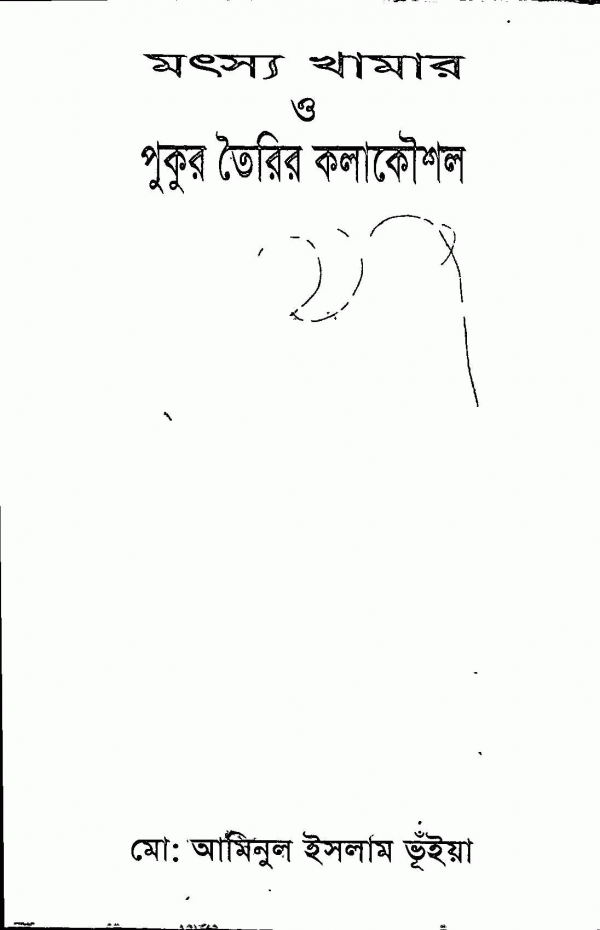 মৎস্য খামার
ও
পুকুর তৈরির কলাকৌশল
মো: আমিনুল ইসলাম ভূঁইয়া